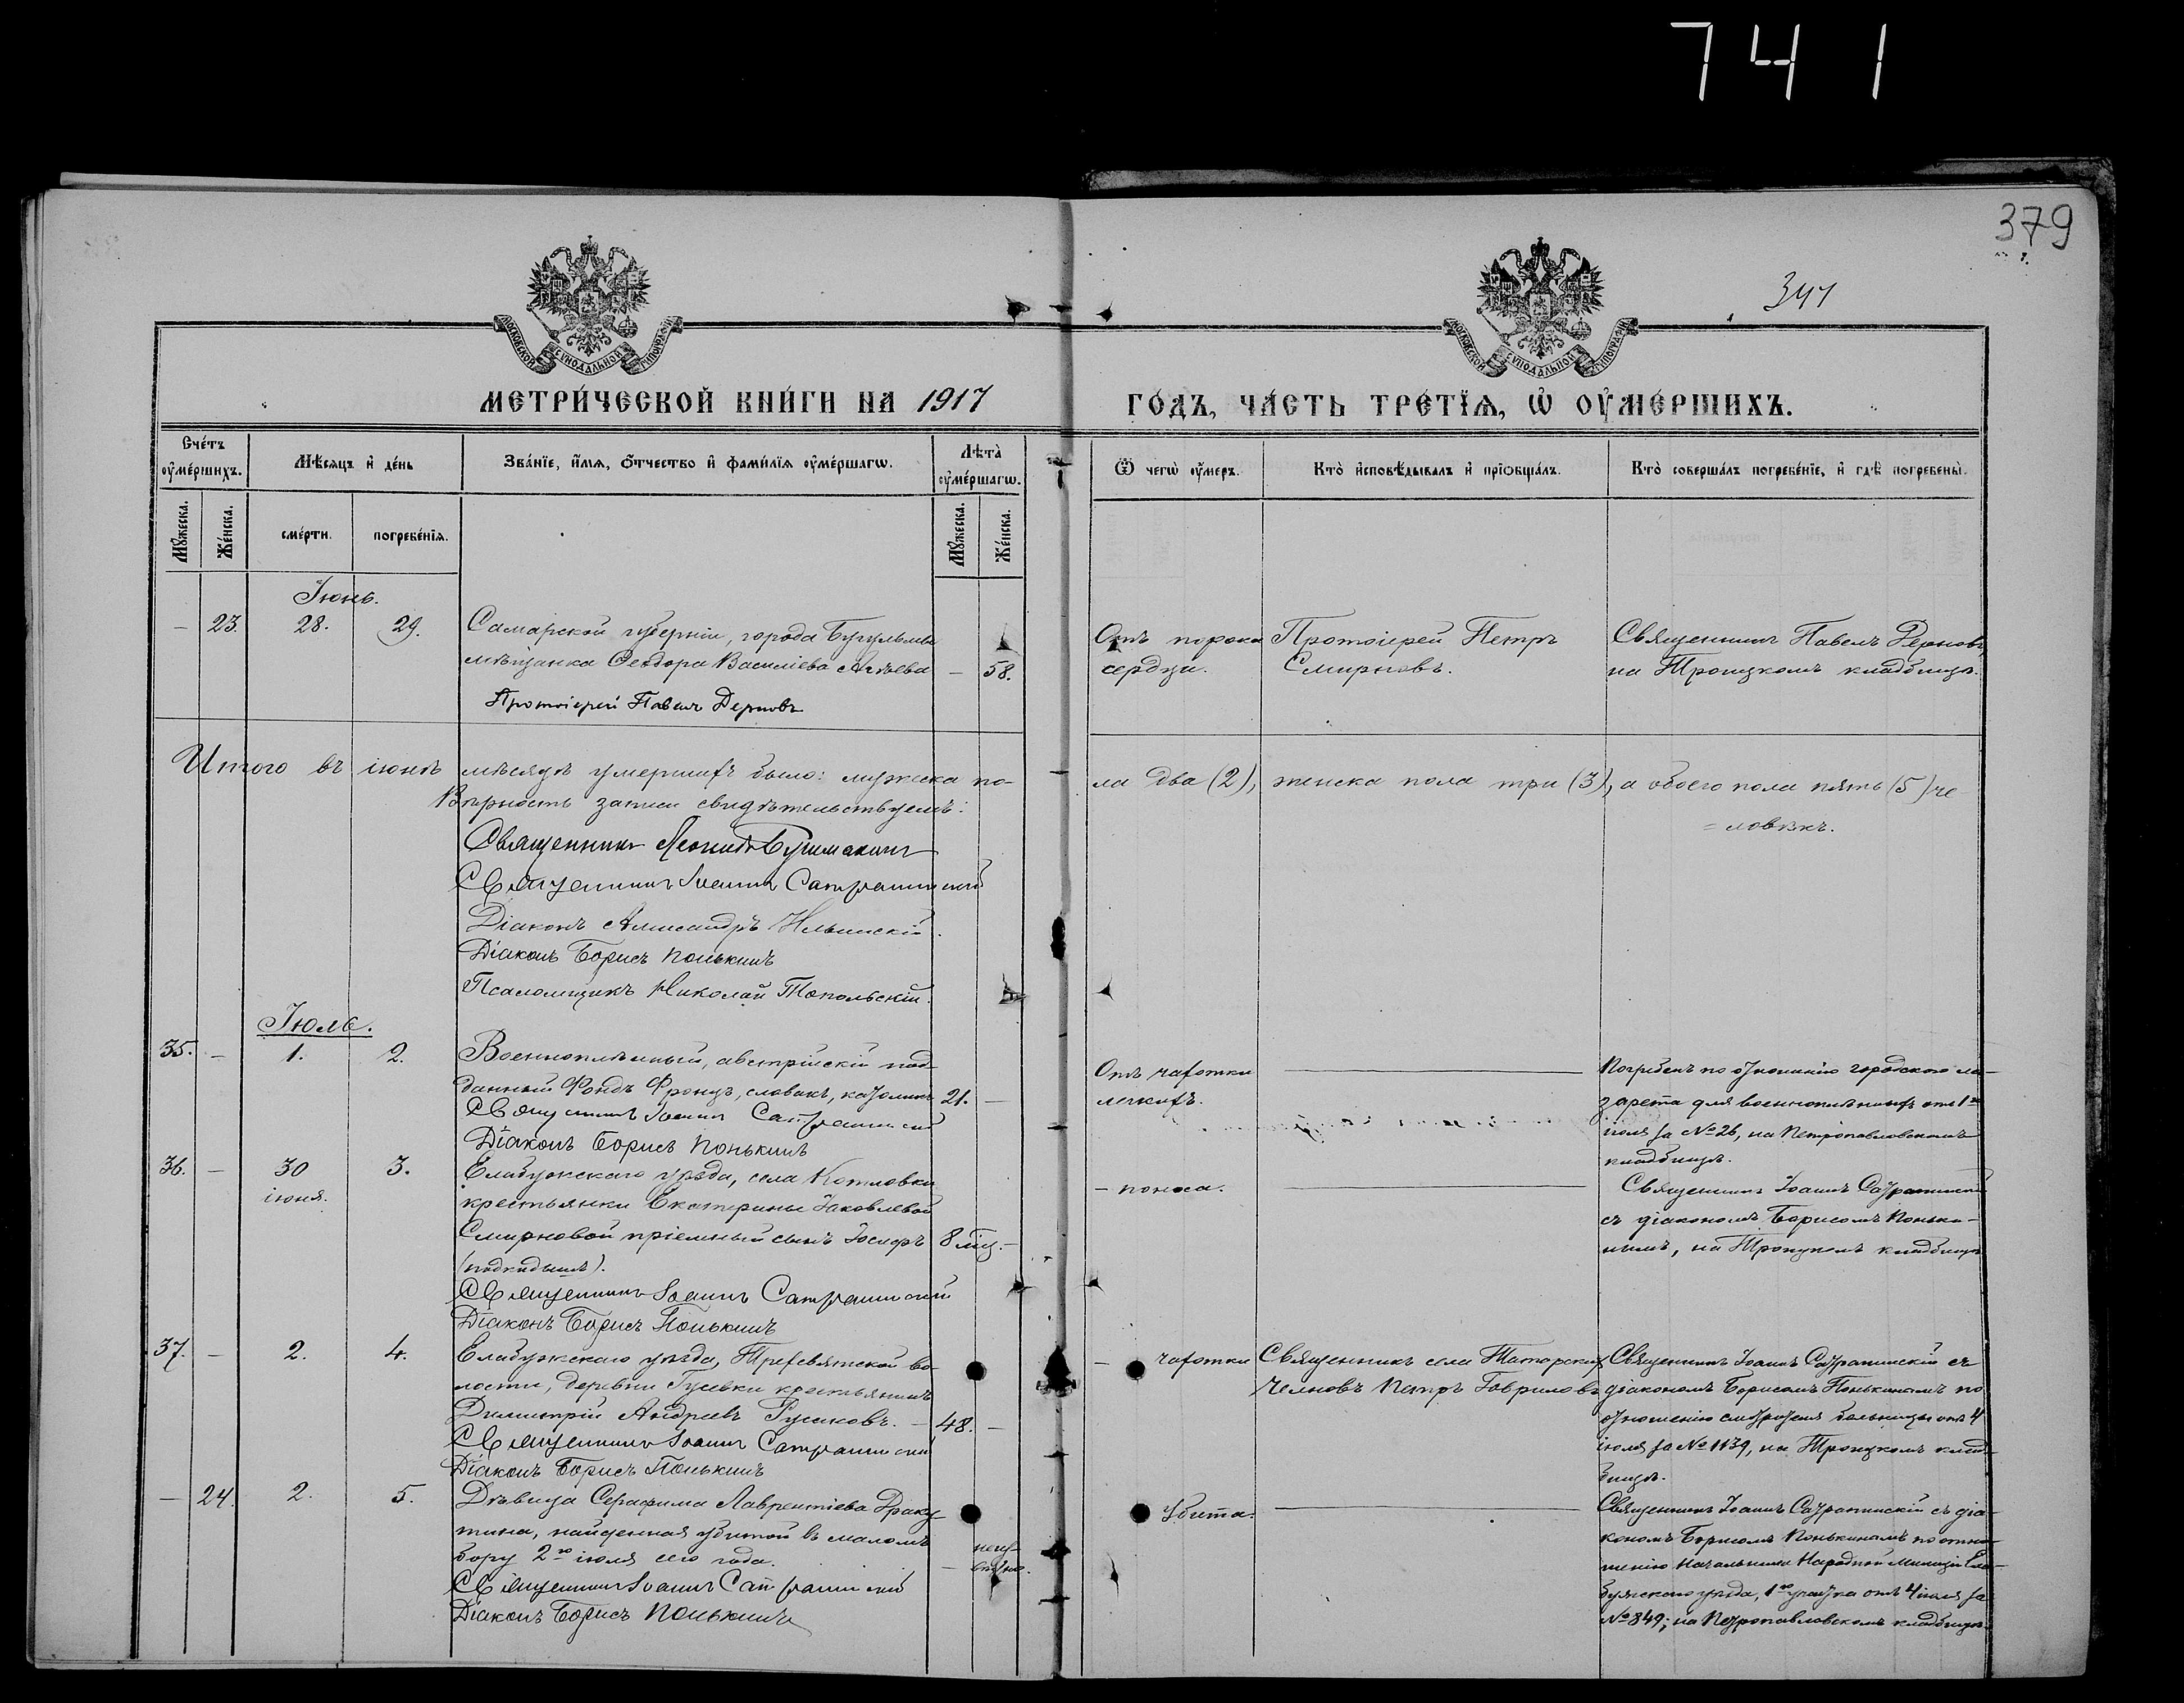 741
379
341
МОСКОВСКОЙ СѴНОДАЛЬНОЙ ТИПОГРАФІИ
МОСКОВСКОЙ СѴНОДАЛЬНОЙ ТИПОГРАФІИ
МЕТРИ́ЧЕСКОЙ КНИ́ГИ НА 1917
ГО́ДЪ, ЧА́СТЬ ТРЕ́ТІѦ, Ѡ ОУ҆МЕ́РШИХЪ.
Счéтъ оу҆мéршихъ.
Мѣ́сяцъ и҆ дéнь
Звáнїе, и҆́мя, ѻ҆́тчество и҆ фамѝлїя оу҆мéршагѡ.
Лѣ̀та оу҆мéршагѡ.
Ѿ чегѡ̀ оу҆́меръ.
Ктò и҆сповѣ́дывалъ и҆ прїѡбщáлъ.
Ктò совершáлъ погребéнїе, и҆ гдѣ̀ погребены̀.
Мꙋ́жеска.
Жéнска.
смéрти.
погребéнїя.
Мꙋ́жеска.
Жéнска.
Іюнь.
— 23. 28. 29. Самарской губерніи, города Бугульмы
мѣщанка Ѳеодора Василіева — 58.
Отъ порока
сердца.
Протоіерей Петръ
Смирновъ.
Священникъ Павелъ Дерновъ,
на Троицкомъ кладбищѣ.
Протоіерей Павелъ Дерновъ
Итого въ іюнѣ мѣсяцѣ умершихъ было: мужеска по-
ла два (2), женска пола три (3), а обоего пола пять (5) че
= ловѣкъ.
Вѣрность записи свидѣтельствуемъ:
Священникъ Леонидъ
Священникъ Іоаннъ Сатрапинскій
Діаконъ Александръ Ильинскій.
Діаконъ Борисъ Понькинъ
Псаломщикъ Николай Топольскій.
Іюль.
35. — 1. 2. Военноплѣнный, австрійскій под-
данный Фондъ Францъ, словакъ, католикъ 21. —
Священникъ Іоаннъ Сатрапинскій
Діаконъ Борисъ Понькинъ
Отъ чахотки
легкихъ.
Погребенъ по отношенію городского ла-
зарета для военноплѣнныхъ отъ 1го
іюля за № 26, на Петропавловскомъ
кладбищѣ.
36. — 30 3. Елабужскаго уѣзда, села Котловки
іюня. крестьянки Екатерины Іаковлевой
Смирновой пріемный сынъ Іосифъ 8 мѣц. —
(подкидышъ).
Священникъ Іоаннъ Сатрапинскій
Діаконъ Борисъ Понькинъ
— поноса.
Священникъ Іоаннъ Сатрапинскій
съ діакономъ Борисомъ Понькинымъ, на Троицкомъ кладбищѣ
37. — 2. 4. Елабужскаго уѣзда, Трехсвятской во-
лости, деревни Гусевки крестьянинъ
Димитрій Андреевъ Гусиковъ. — 48. —
Священникъ Іоаннъ Сатрапинскій
Діаконъ Борисъ Понькинъ
— чахотки
Священникъ села Татарскихъ
Челновъ Петръ Гавриловъ
Священникъ Іоаннъ Сатрапинскій съ
діакономъ Борисомъ Понькинымъ по
отношенію смотрителя больницы отъ 4
іюля за № 1139, на Троицкомъ клад-
бищѣ.
— 24. 2. 5. Дѣвица Серафима Лаврентіева Драку-
тина, найденная убитой въ маломъ
бору 2го іюля сего года. — неиз-
вѣстно.
Священникъ Іоаннъ Сатрапинскій
Діаконъ Борисъ Понькинъ
Убита.
Священникъ Іоаннъ Сатрапинскій съ діа-
кономъ Борисомъ Понькинымъ по отно-
шенію Начальника Народной Милиціи Ела-
бужскаго уѣзда, 1го участка отъ 4 іюля за
№ 849; на Петропавловскомъ кладбищѣ.